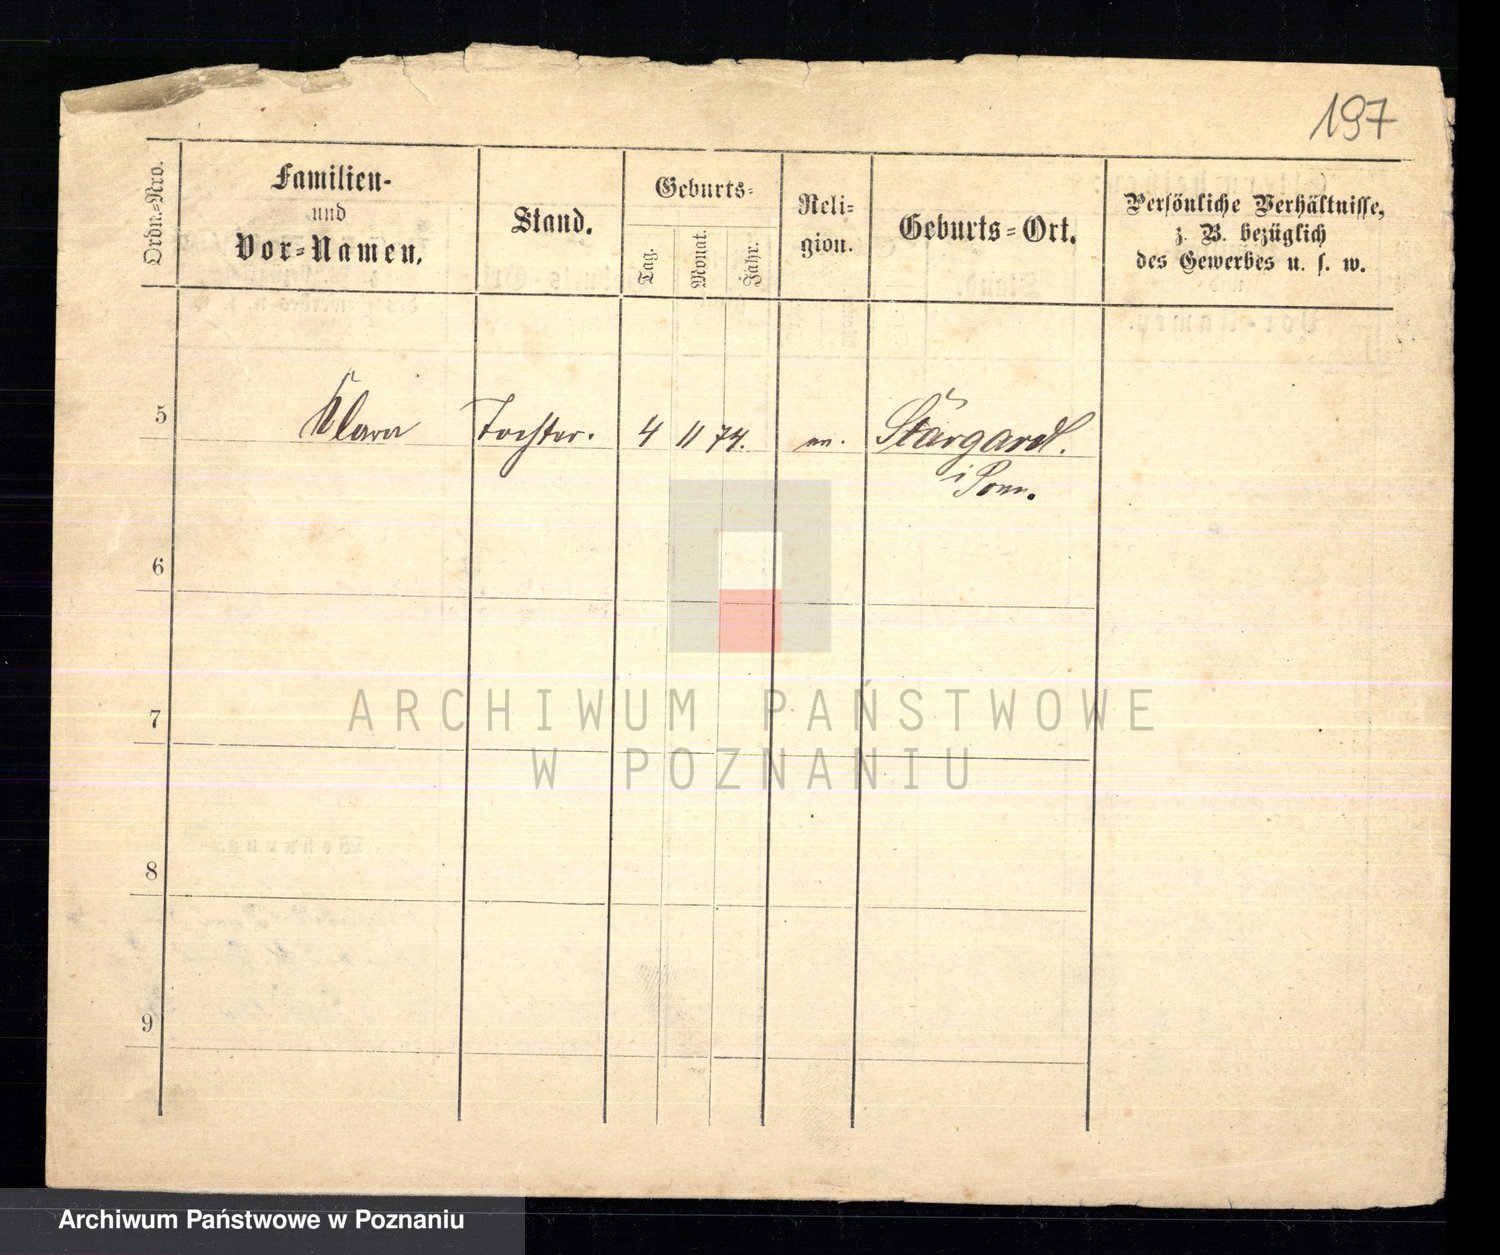 197
Ordn.-Nro.
Familien-
und
Vor-Namen.
Stand.
Geburts-
Tag.
Monat.
Jahr.
Reli-
gion.
Geburts-Ort.
Persönliche Verhältnisse,
z. B. bezüglich
des Gewerbes u. s. w.
5 Klara Tochter. 4 11 74. ev. Stargard.
i Pom.
6
7
8
9
ARCHIWUM PAŃSTWOWE
W POZNANIU
Archiwum Państwowe w Poznaniu